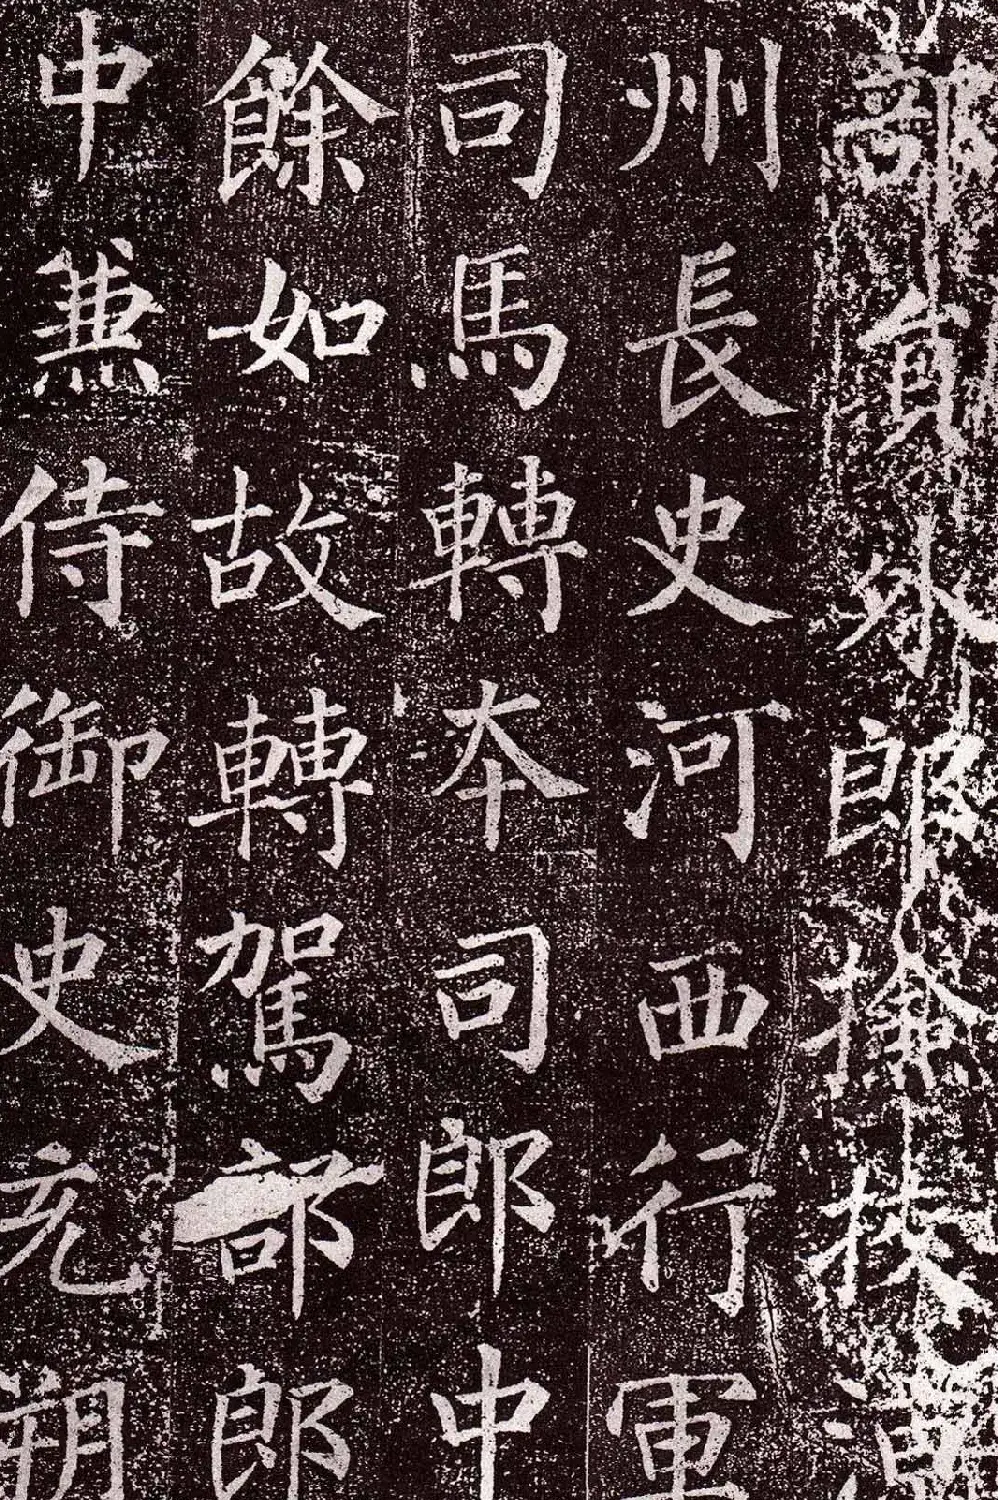 部員外郎檢校涼
州長史河西行軍
司馬轉本司郎中
餘如故轉駕部郎
中兼侍御史充朔